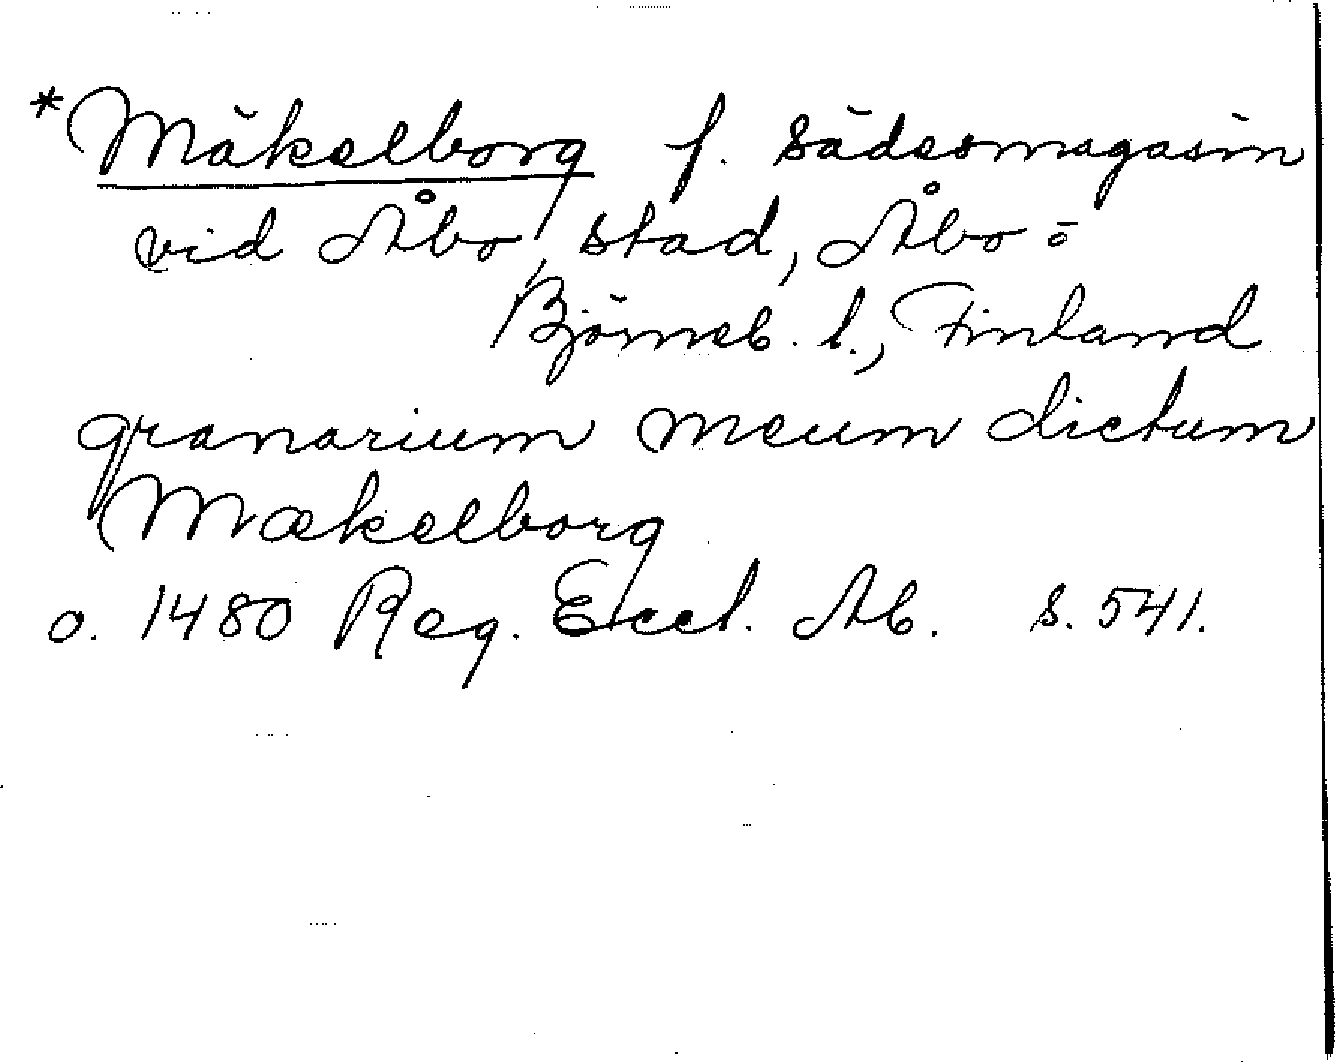 *Mäkelborg f. sädesmagasin
vid Åbo stad, Åbo =
Björneb. l., Finland
granarium meum dictum
Mækelborg
o. 1480 Reg. Eccl. Ab. s. 541.